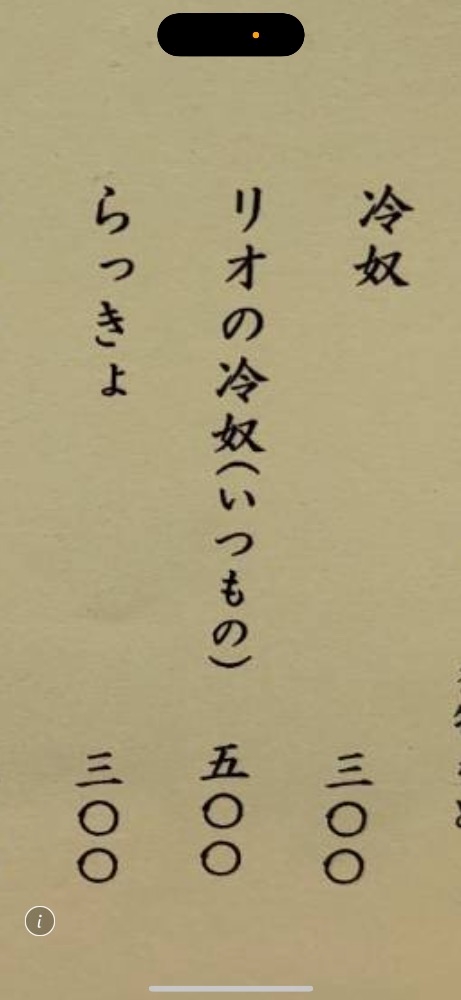 冷奴 三〇〇
リオの冷奴(いつもの) 五〇〇
らっきょ 三〇〇